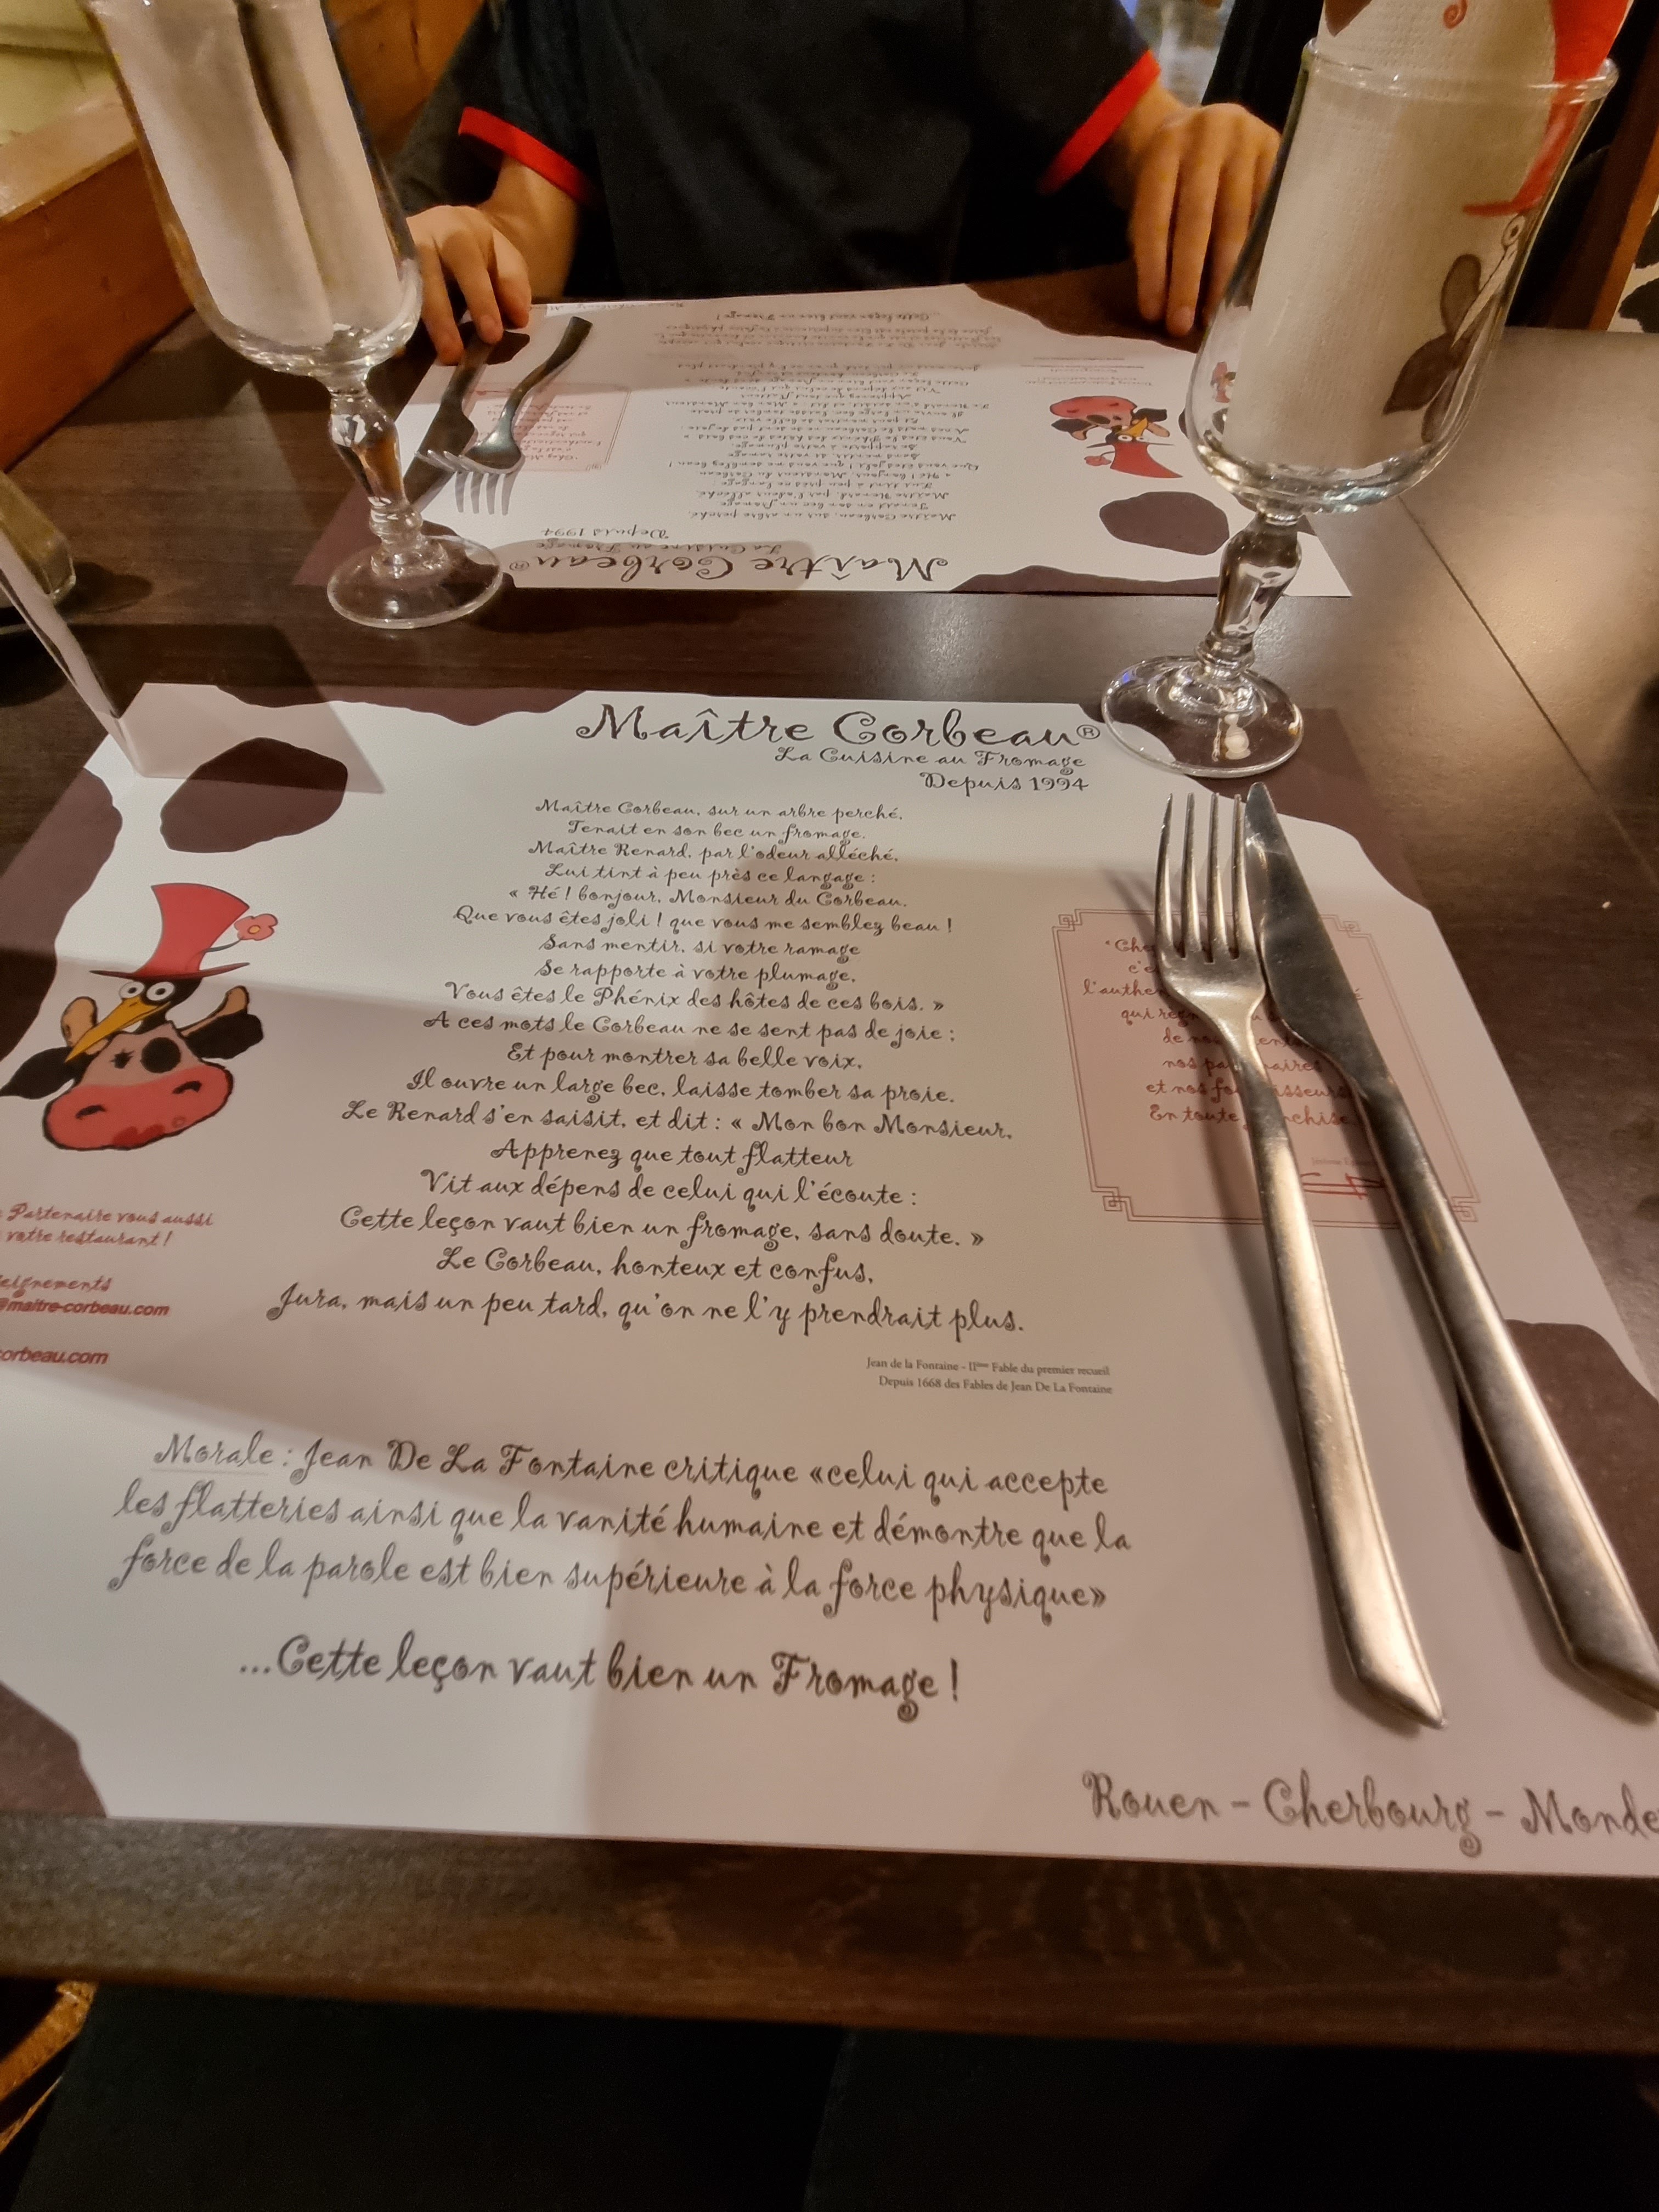 Maître Corbeau®
La Cuisine au Fromage
Depuis 1994
Maître Corbeau, sur un arbre perché,
Tenait en son bec un fromage.
Maître Renard, par l'odeur alléché,
Lui tint à peu près ce langage :
« Hé ! bonjour, Monsieur du Corbeau.
Que vous êtes joli ! que vous me semblez beau !
Sans mentir, si votre ramage
Se rapporte à votre plumage,
Vous êtes le Phénix des hôtes de ces bois. »
A ces mots le Corbeau ne se sent pas de joie ;
Et pour montrer sa belle voix,
Il ouvre un large bec, laisse tomber sa proie.
Le Renard s'en saisit, et dit : « Mon bon Monsieur,
Apprenez que tout flatteur
Vit aux dépens de celui qui l'écoute :
Cette leçon vaut bien un fromage, sans doute. »
Le Corbeau, honteux et confus,
Jura, mais un peu tard, qu'on ne l'y prendrait plus.
Jean de la Fontaine - IIème Fable du premier recueil
Depuis 1668 des Fables de Jean De La Fontaine
Morale : Jean De La Fontaine critique «celui qui accepte
les flatteries ainsi que la vanité humaine et démontre que la
force de la parole est bien supérieure à la force physique»
...Cette leçon vaut bien un Fromage !
Rouen - Cherbourg - Monde
Partenaire vous aussi
votre restaurant !
@maitre-corbeau.com
corbeau.com
c'e
qui
de nos
et nos
En toute
Maître Corbeau®
La Cuisine au Fromage
Depuis 1994